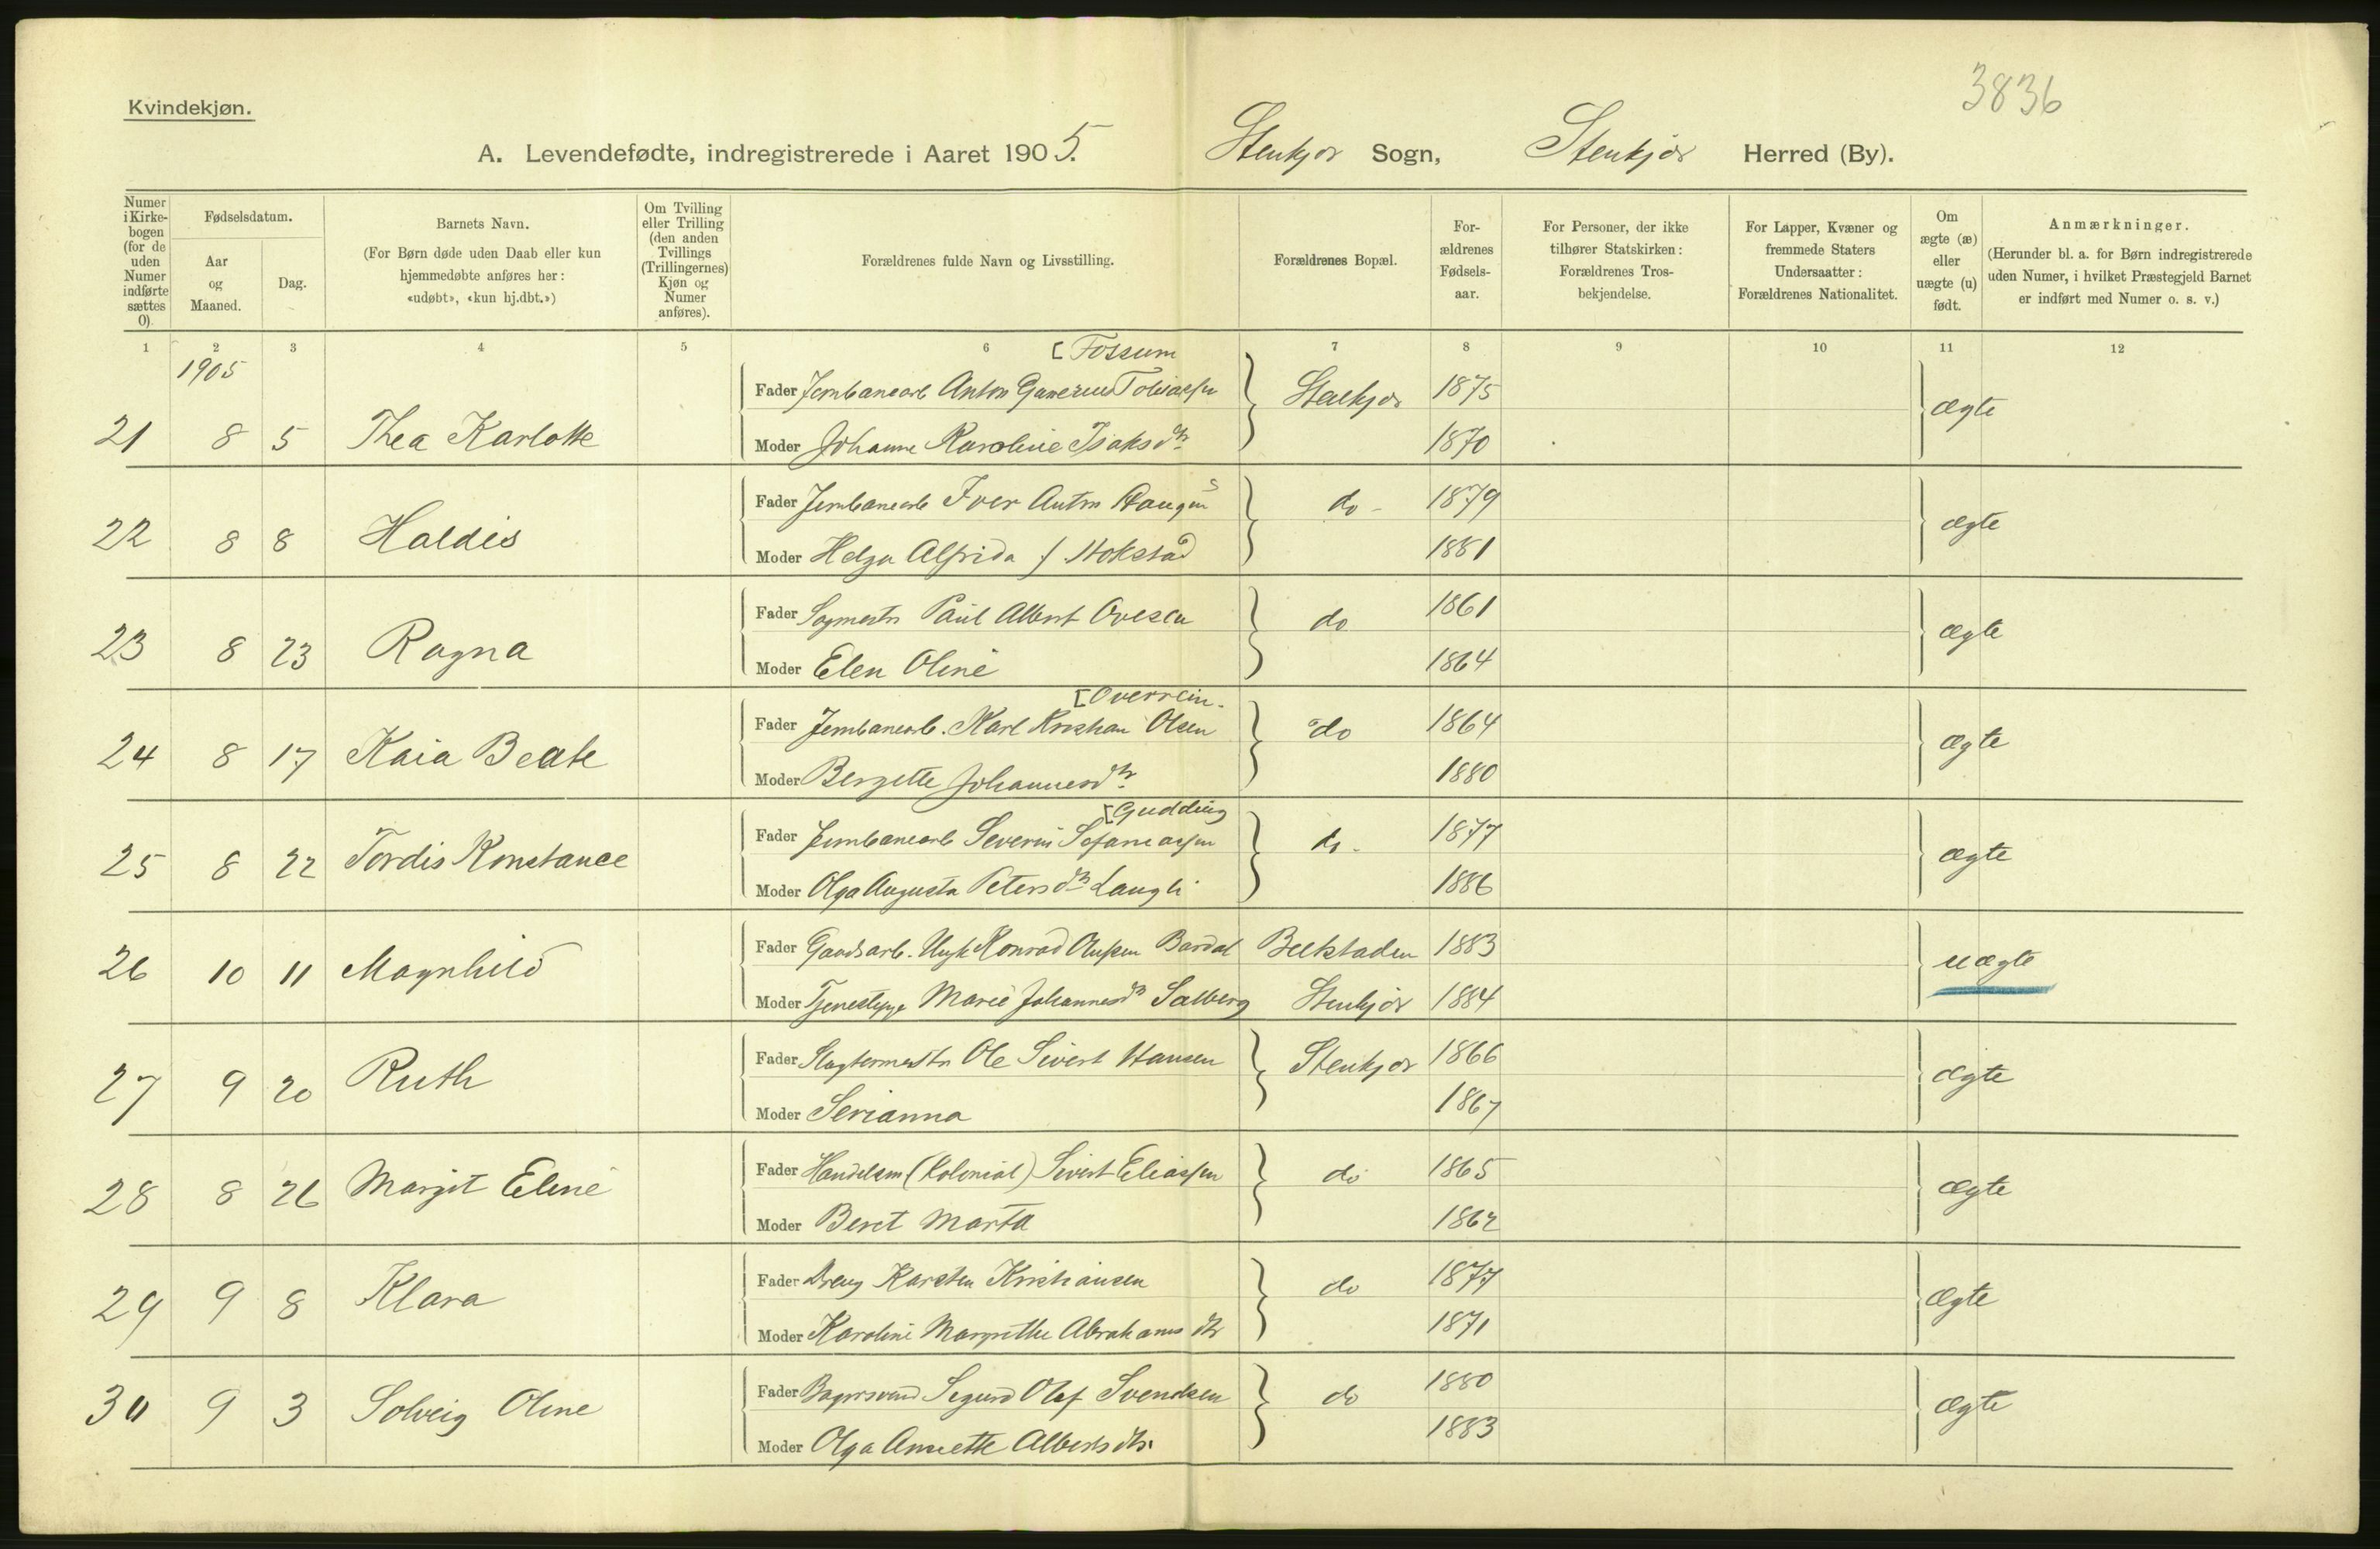 3836
Kvindekjøn.
A. Levendefødte, indregistrerede i Aaret 1905. Stenkjær Sogn, Stenkjær Herred (By).
Numer i Kirkebogen (for de uden Numer indførte sættes 0).
Fødselsdatum.
Aar og Maaned.
Dag.
Barnets Navn.
(For Børn døde uden Daab eller kun hjemmedøbte anføres her: «udøbt», «kun hj.dbt.»)
Om Tvilling eller Trilling (den anden Tvillings (Trillingernes) Kjøn og Numer anføres).
Forældrenes fulde Navn og Livsstilling.
Forældrenes Bopæl.
Forældrenes Fødselsaar.
For Personer, der ikke tilhører Statskirken: Forældrenes Trosbekjendelse.
For Lapper, Kvæner og fremmede Staters Undersaatter: Forældrenes Nationalitet.
Om ægte (æ) eller uægte (u) født.
Anmærkninger.
(Herunder bl. a. for Børn indregistrerede uden Numer, i hvilket Præstegjeld Barnet er indført med Numer o. s. v.)
1 2 3 4 5 6 7 8 9 10 11 12
1905
[Fossum
Fader Jernbanearb Anton Tobiassen Stenkjær 1875
21 8 5 Thea Karlotte ægte
Moder Johanne Karoline Isaksdtr 1870
Fader Jernbanearb Iver Anton Haugan do - 1879
22 8 8 Haldis ægte
Moder Helga Alfrida f. Hokstad 1881
Fader Sagmestr Paul Albert Ovesen do 1861
23 8 23 Ragna ægte
Moder Elen Oline 1864
[Overrein.
Fader Jernbanearb. Karl Kristian Olsen do 1864
24 8 17 Kaia Beate ægte
Moder Bergette Johannesdtr 1880
[Gudding
Fader Jernbanearb Severin Sefaniassen do - 1877
25 8 22 Tordis Konstance ægte
Moder Olga Augusta Petersdtr Langli 1886
Fader Gaardsarb. Ungk Konrad Olufsen Bardal Beitstaden 1883
26 10 11 Magnhild uægte
Moder Tjenestepge Marie Johannesdtr Salberg Stenkjær 1884
Fader Slagtermestr Ole Sivert Hansen Stenkjær 1866
27 9 20 Ruth ægte
Moder Serianna 1867
Fader Handelsm (Kolonial) Sivert Eliassen do 1865
28 8 26 Margit Eline ægte
Moder Beret Marta 1862
Fader Dreng Karsten Kristiansen do 1877
29 9 8 Klara ægte
Moder Karoline Margrethe Abrahamsdtr 1871
Fader Bagersvend Sigurd Olaf Svendsen do 1880
30 9 3 Solveig Oline ægte
Moder Olga Annette Albertsdtr. 1883